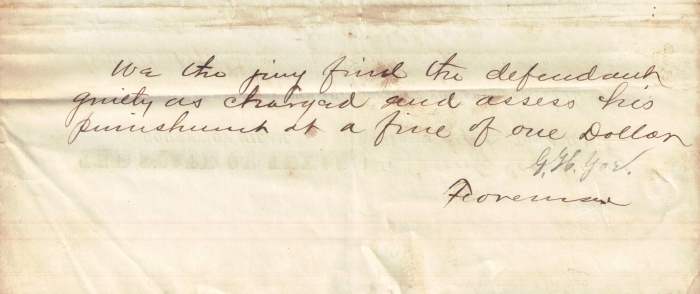 We the jury find the defendant
guilty as charged and assess his
punishment at a fine of one Dollar
G. H.
Foreman